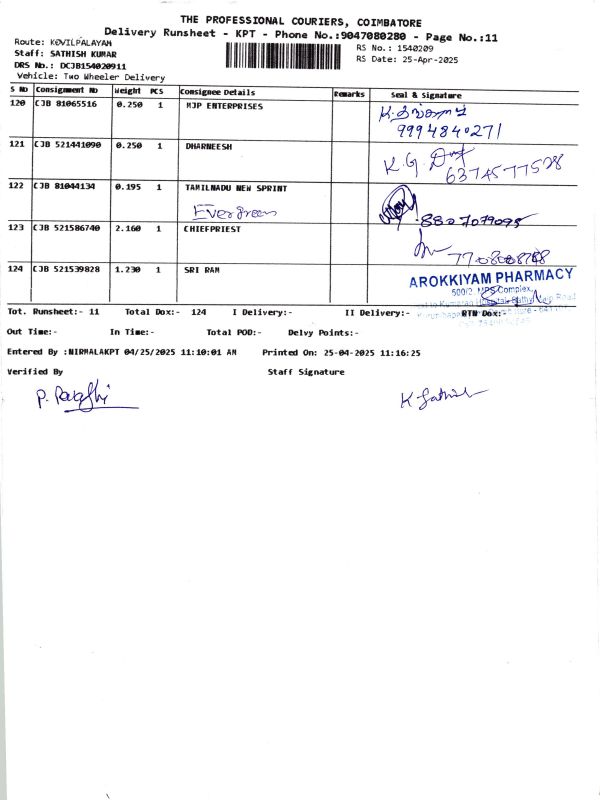 THE PROFESSIONAL COURIERS, COIMBATORE
Delivery Runsheet - KPT - Phone No.:9047080280 - Page No.:11
Route: KOVILPALAYAM
Staff: SATHISH KUMAR
DRS No.: DCJB154020911
Vehicle: Two Wheeler Delivery
RS No.: 1540209
RS Date: 25-Apr-2025
S No Consignment No Weight PCS Consignee Details Remarks Seal & Signature
120 CJB 81065516 0.250 1 MJP ENTERPRISES
9994840271
121 CJB 521441090 0.250 1 DHARNEESH K.G.
6374577528
122 CJB 81044134 0.195 1 TAMILNADU NEW SPRINT
Evergreen
8807079095
123 CJB 521586740 2.160 1 CHIEFPRIEST
124 CJB 521539828 1.230 1 SRI RAM
AROKKIYAM PHARMACY
500/2, MPS Complex,
Tot. Runsheet:- 11 Total Dox:- 124 I Delivery:- II Delivery:- RTN Dox:-
Out Time:- In Time:- Total POD:- Delvy Points:-
Entered By :NIRMALAKPT 04/25/2025 11:10:01 AM Printed On: 25-04-2025 11:16:25
Verified By Staff Signature
K Sathish